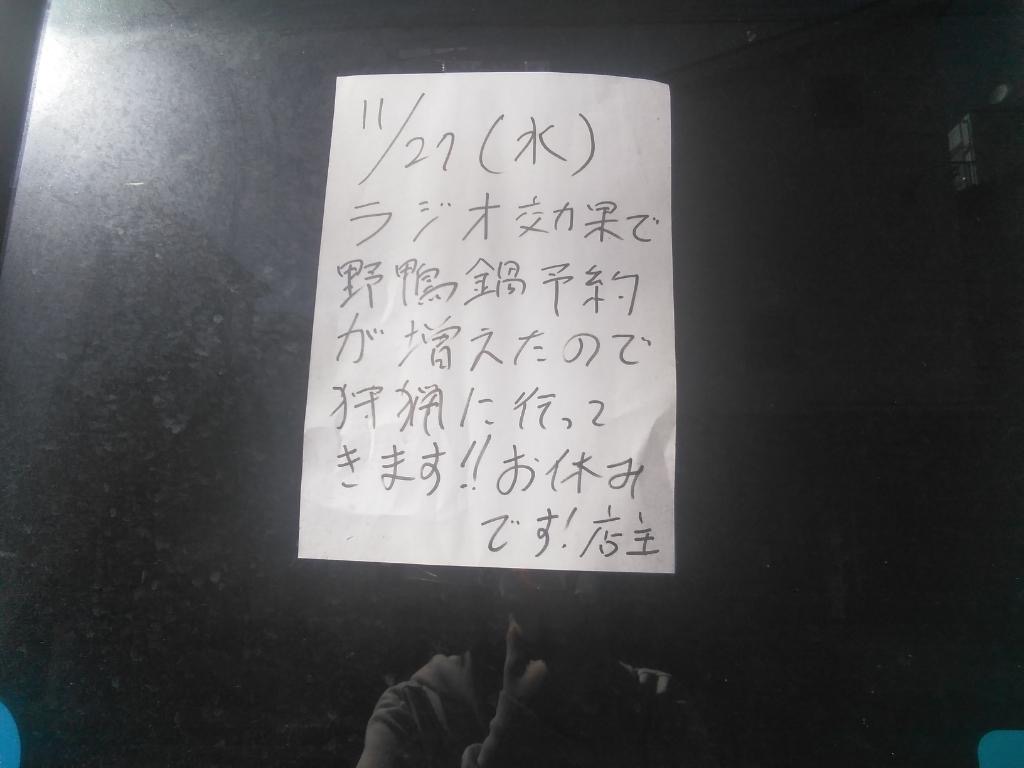 11/27(水)
ラジオ効果で
野鴨鍋予約
が増えたので
狩猟に行って
きます!!お休み
です!店主